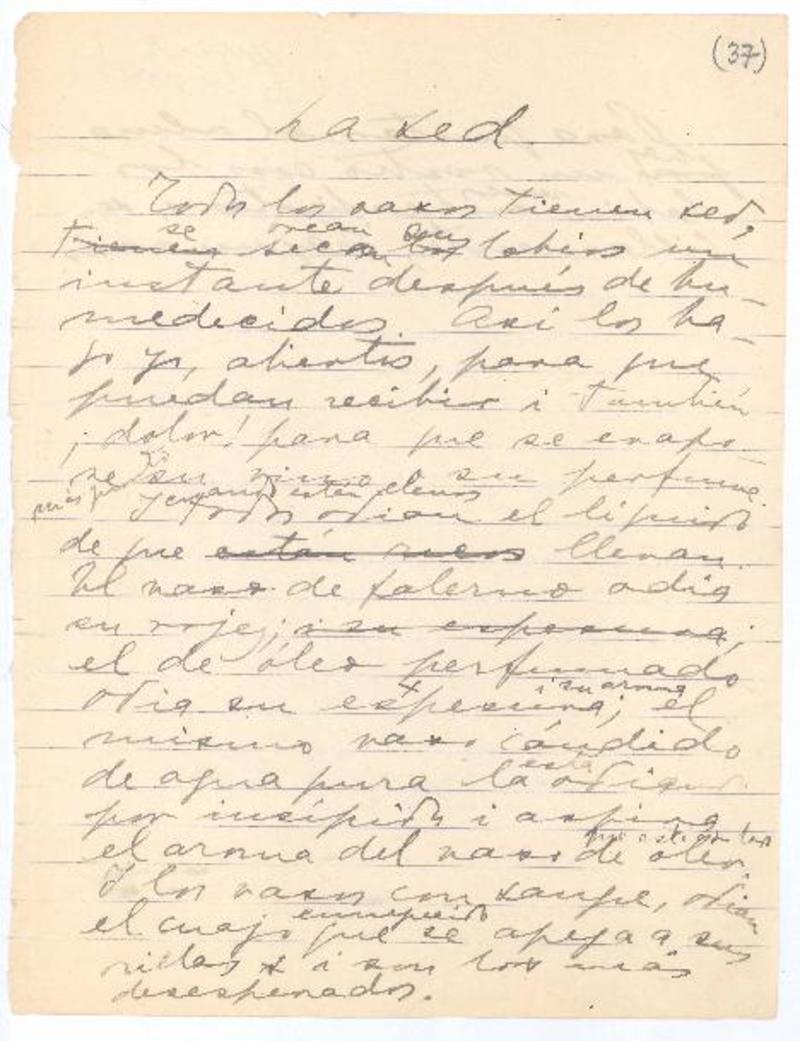 (37)
La sed.
Todos los vasos tienen sed,
se orean sus
tienen secan los labios un
instante después de hu-
medecidos. Así los ha-
go yo, abiertos, para que
puedan recibir i también
¡dolor! para que se evapo-
re su vino o su perfume.
I cuando están llenos
Todos odian el líquido
de que están llevan.
El vaso de falerno odia
su rojez; i su espesura;
el de óleo perfumado
i su aroma
odia su espesura; el
mismo vaso cándido
está
de agua pura la odiand
por insípida i aspira
que está junto
el aroma del vaso de óleo.
I los vasos con sangre, odian
ennegrecido
el cuajo que se apega a sus
orillas i son los más
desesperados.